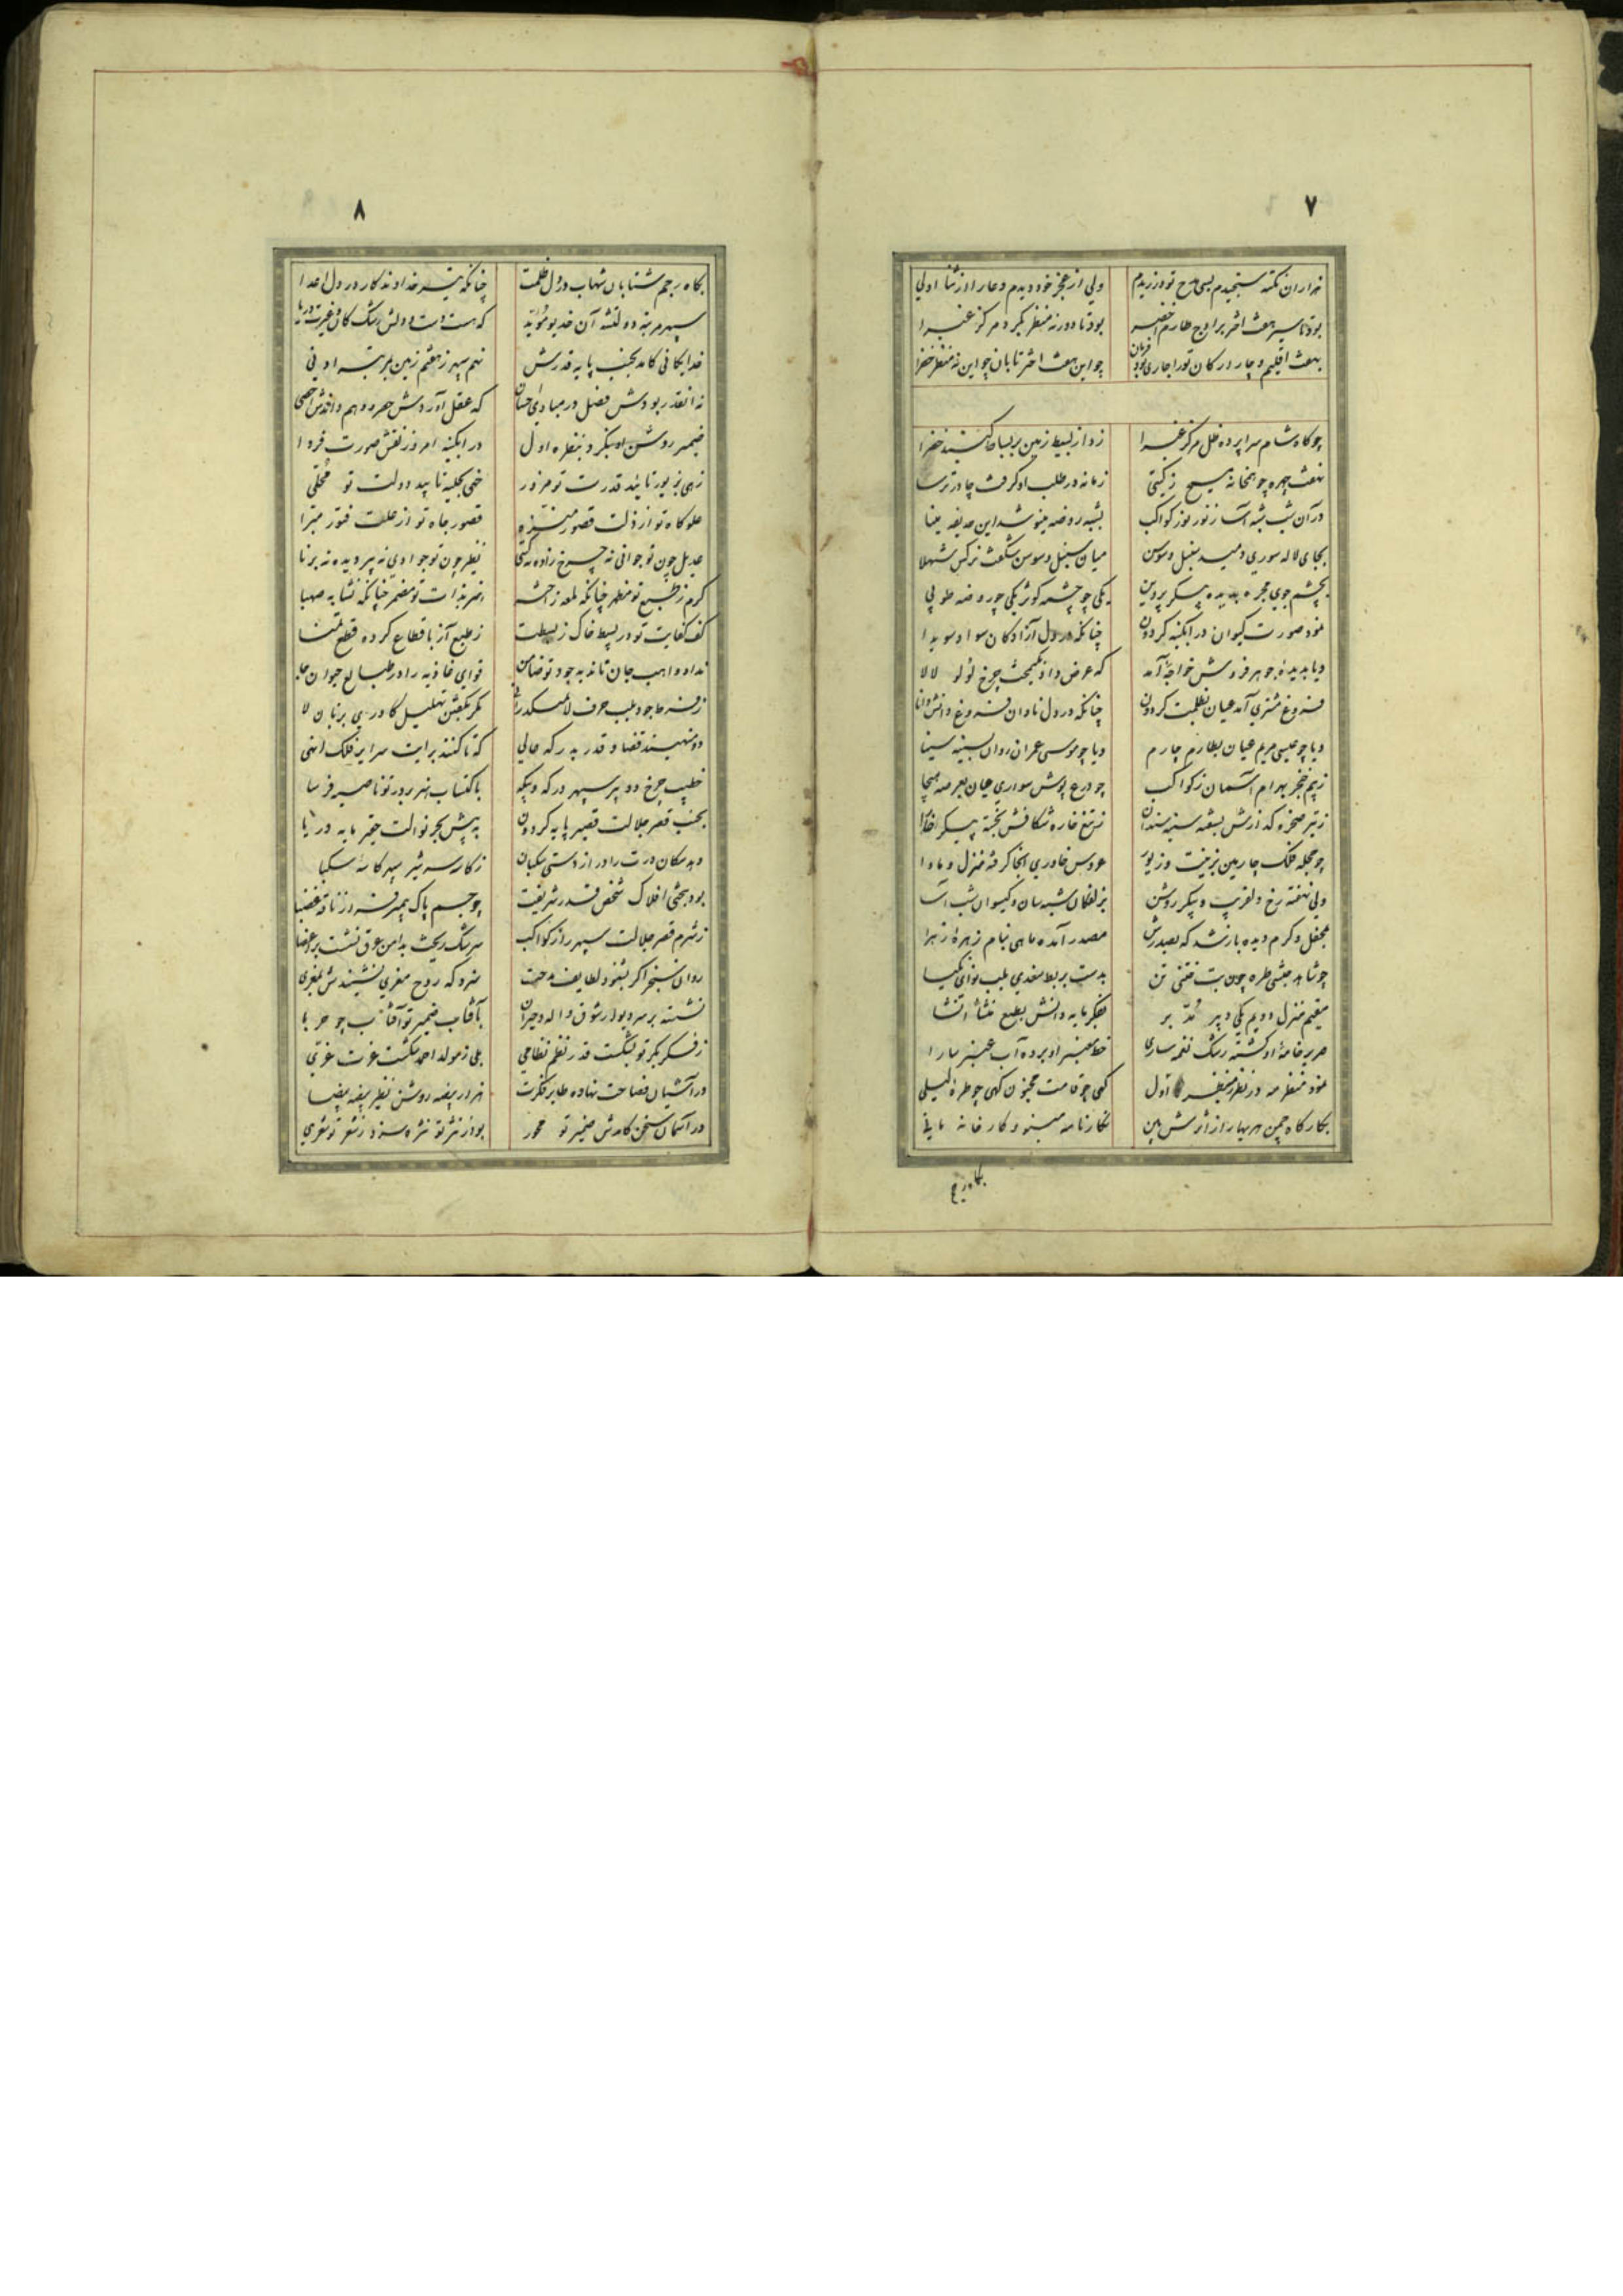 ۷
هزاران نکته سنجیدم بسی مدح تو ورزیدم ولی از عجز خود دیدم دعا را از ثنا اولی
بود تا سیر هفت اختر بر اوج طارم اخضر بود تا دور نه منظر بگرد مرکز غبرا
بهفت اقلیم و چار ارکان تو را جاری بود فرمان چو این هفت اختر تابان چو این نه منظر خضرا
چو کاه شام سراپرده ظل مرکز غبرا زد از بسیط زمین بر بساط گنبد خضرا
نهفت چهره چو انجانه مسیح ز گیتی زمانه در طلب او گرفت چادر ترسا
در آن شب شبه آسا ز نور نور کواکب بشبه روضه مینو شد این حدیقه مینا
بجای لاله سوری دمید سنبل و سوسن میان سنبل و سوسن شکفت نرکس شهلا
بچشم جوی مجره بدیده پیکر پروین یکی چو چشمه کوثر یکی چو روضه طوبی
نمود صورت کیوان در ابکینه کردون چنانکه در دل آزادکان سواد سویدا
و یا بدیده جوهر فروش خواجه آمد که عرض داد کیمخت چرخ لؤلؤ لالا
فروغ مشتری آمد عیان بظلمت کردون چنانکه در دل نادان فروغ دانش دانا
و یا چو عیسی مریم عیان بطارم چارم و یا چو موسی عمران روان بسینه سینا
ز بیم خنجر بهرام آسمان ز کواکب چو درع پوش سواری عیان بعرصه هیجا
ز تیر صخره کدازش بسفته سینه سندان ز تیغ خاره شکافش بخسته پیکر خارا
چو حجله فلک چارمین بزینت و زیور عروس خاوری انجا کرفته منزل و ماوا
ولی نهفته رخ دلفریب و پیکر روشن بزلفکان شبه سان و کیسوان شب آسا
بمحفل و کرم دیده باز شد که بصدرش مصدر آمده ماهی بنام زهره زهرا
چو شاهد حبشی طره چون بت ختنی تن بدست بربط سغدی بلب نوای نکیسا
مقیم منزل دویم یکی دبیر مدبر بفکر مایه دانش بطبع منشأ انشا
صریر خامه او کشته رشک نغمه ساری خط معنبر او برده آب عنبر سارا
نمود منظر مه در نظر ز منظر اول کهی چو قامت مجنون کهی چو طره لیلی
بکار کاه چمن هر بهار از اثرش بین نکارنامه مینو و کارخانه مانی
بکاه رجم
۸
بکاه رجم شتابان شهاب در دل ظلمت چنانکه تیر خداوندکار در دل اعدا
سپهر مرتبه دولتشه آن خدیو مؤید که هست دست و دلش رشک کان و غیرت دریا
خدایکانی کامد بجنب پایه قدرش نهم سپهر ز هفتم زمین بمرتبه ادنی
نه انقدر بودش فضل در مبادی احسان که عقل آردش حصر و وهم داندش احصی
ضمیر روشن او بنکرد بنظره اول در ابکینه امروز نقش صورت فردا
زهی بزیور تائید قدرت تو مزور خهی بحلیه تایید دولت تو محلی
علو کاه تو از ذلت قصور منزه قصور جاه تو از علت فتور مبرا
عدیل چون تو جوانی نه چرخ زاده نه کیتی نظیر چون تو جوادی نه پیر دیده نه برنا
کرم ز طبع تو مظهر چنانکه لمعه ز اخشه هنر بذات تو مضمر چنانکه نشاء به صهبا
کف کفایت تو در بسیط خاک ز بسطت ز طبع آز باقطاع کرده قطع تمنا
نداد واهب جان تا نه به جود تو ضامن قوای غاذیه را در طبایع حیوان جا
مکر بکفتن تهلیل کاوری بزبان لا
خطیب چرخ دو پیر سپهر درکه و بیکه باکتساب هنر بر در تو ناصیه فرسا
بجنب قصر جلالت قصیر پایه کردون به پیش بحر نوالت حقیر مایه دریا
دهد سکان درت را در از دستی سکبان ز کاسه سر شیر سپهر کاسه سکبا
ز شرم قصر جلالت سپهر را ز کواکب سرشک ریخت بدامن عرق نشست بر اعضا
روان سنجر اکر بشنود لطایف مدحت سزد که روح معزی نشیندش بمعزی
نشسته بر سر دیوار شوق واله و حیران بآفتاب ضمیر تو آفتاب چو حربا
ز فکر بکر تو بشکست قدر نظم نظامی بلی ز مولد احمد شکست عزت عزی
در آشیان فصاحت نهاده طایر فکرت هزار بیضه روشن نظیر بیضه بیضا
در آسمان سخن کامدش ضمیر تو محور بود ز نثر تو نثره سزد ز شعر تو شعری